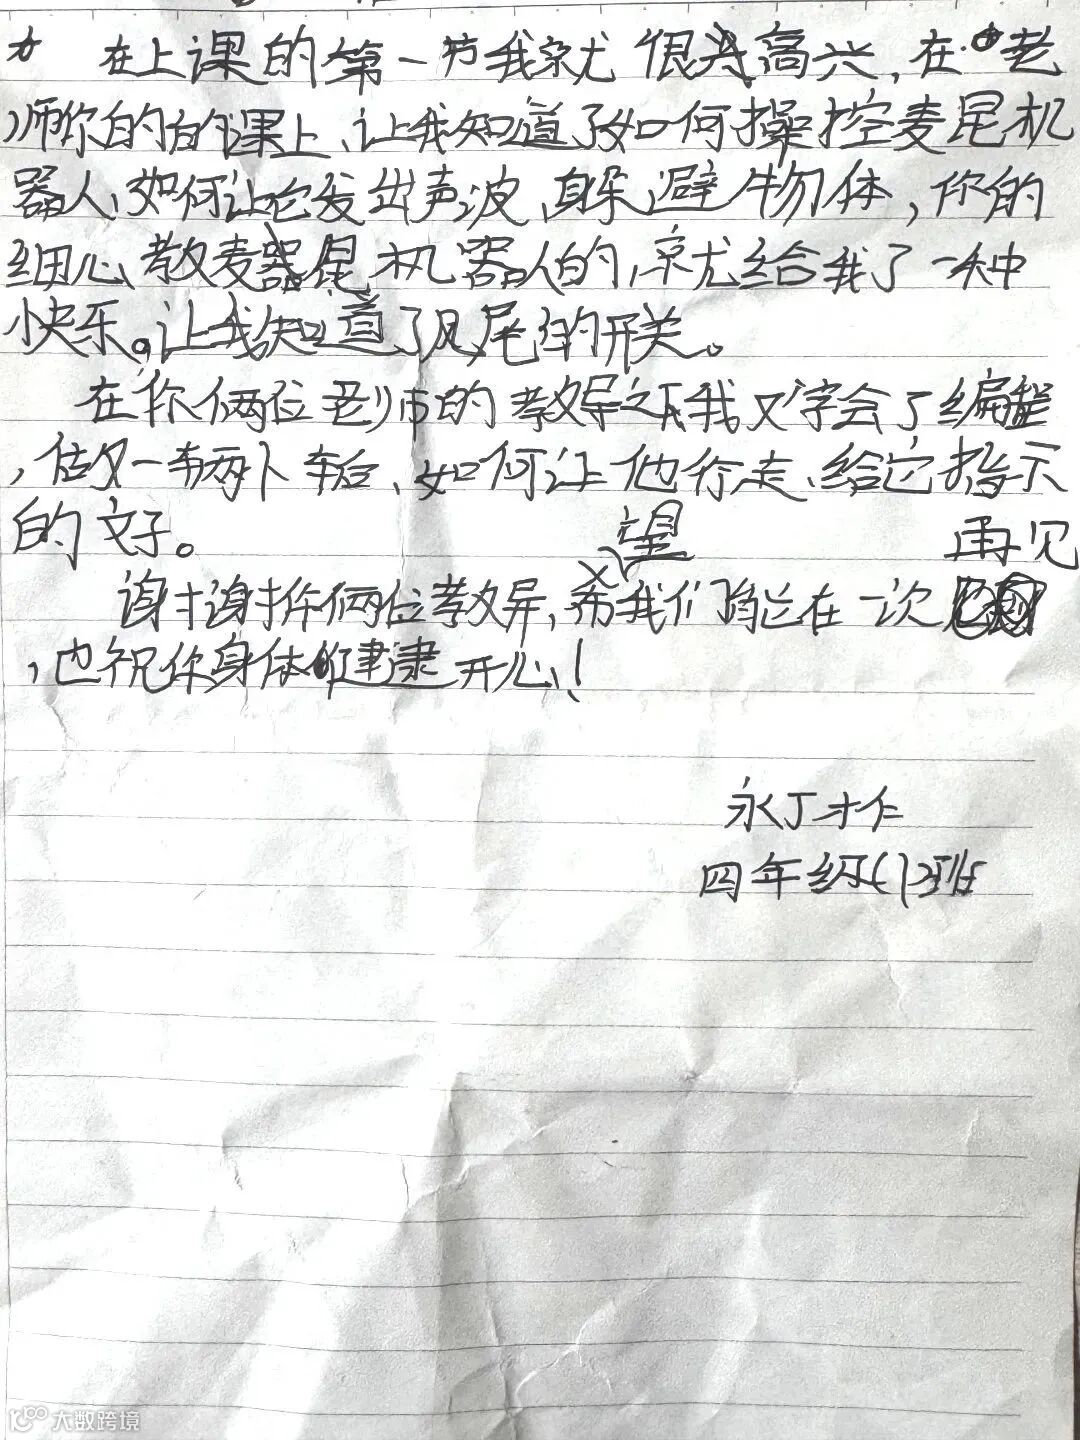 在上课的第一节我就很高兴,在老
师你的的课上、让我知道了如何操控麦昆机
器人、如何让它发出声波、躲避物体,你的
细心教麦昆机器人的,就给我了一种
快乐。让我知道了见尾的开关。
在你俩位老师的教导之下我又学会了编程
,做一辆卜车台、如何让他行走、给它指示
的文子。
谢谢你俩位教导,希望我们能在一次再见
,也祝你身体健康开心!
永丁才仁
四年级(1)班
大数跨境